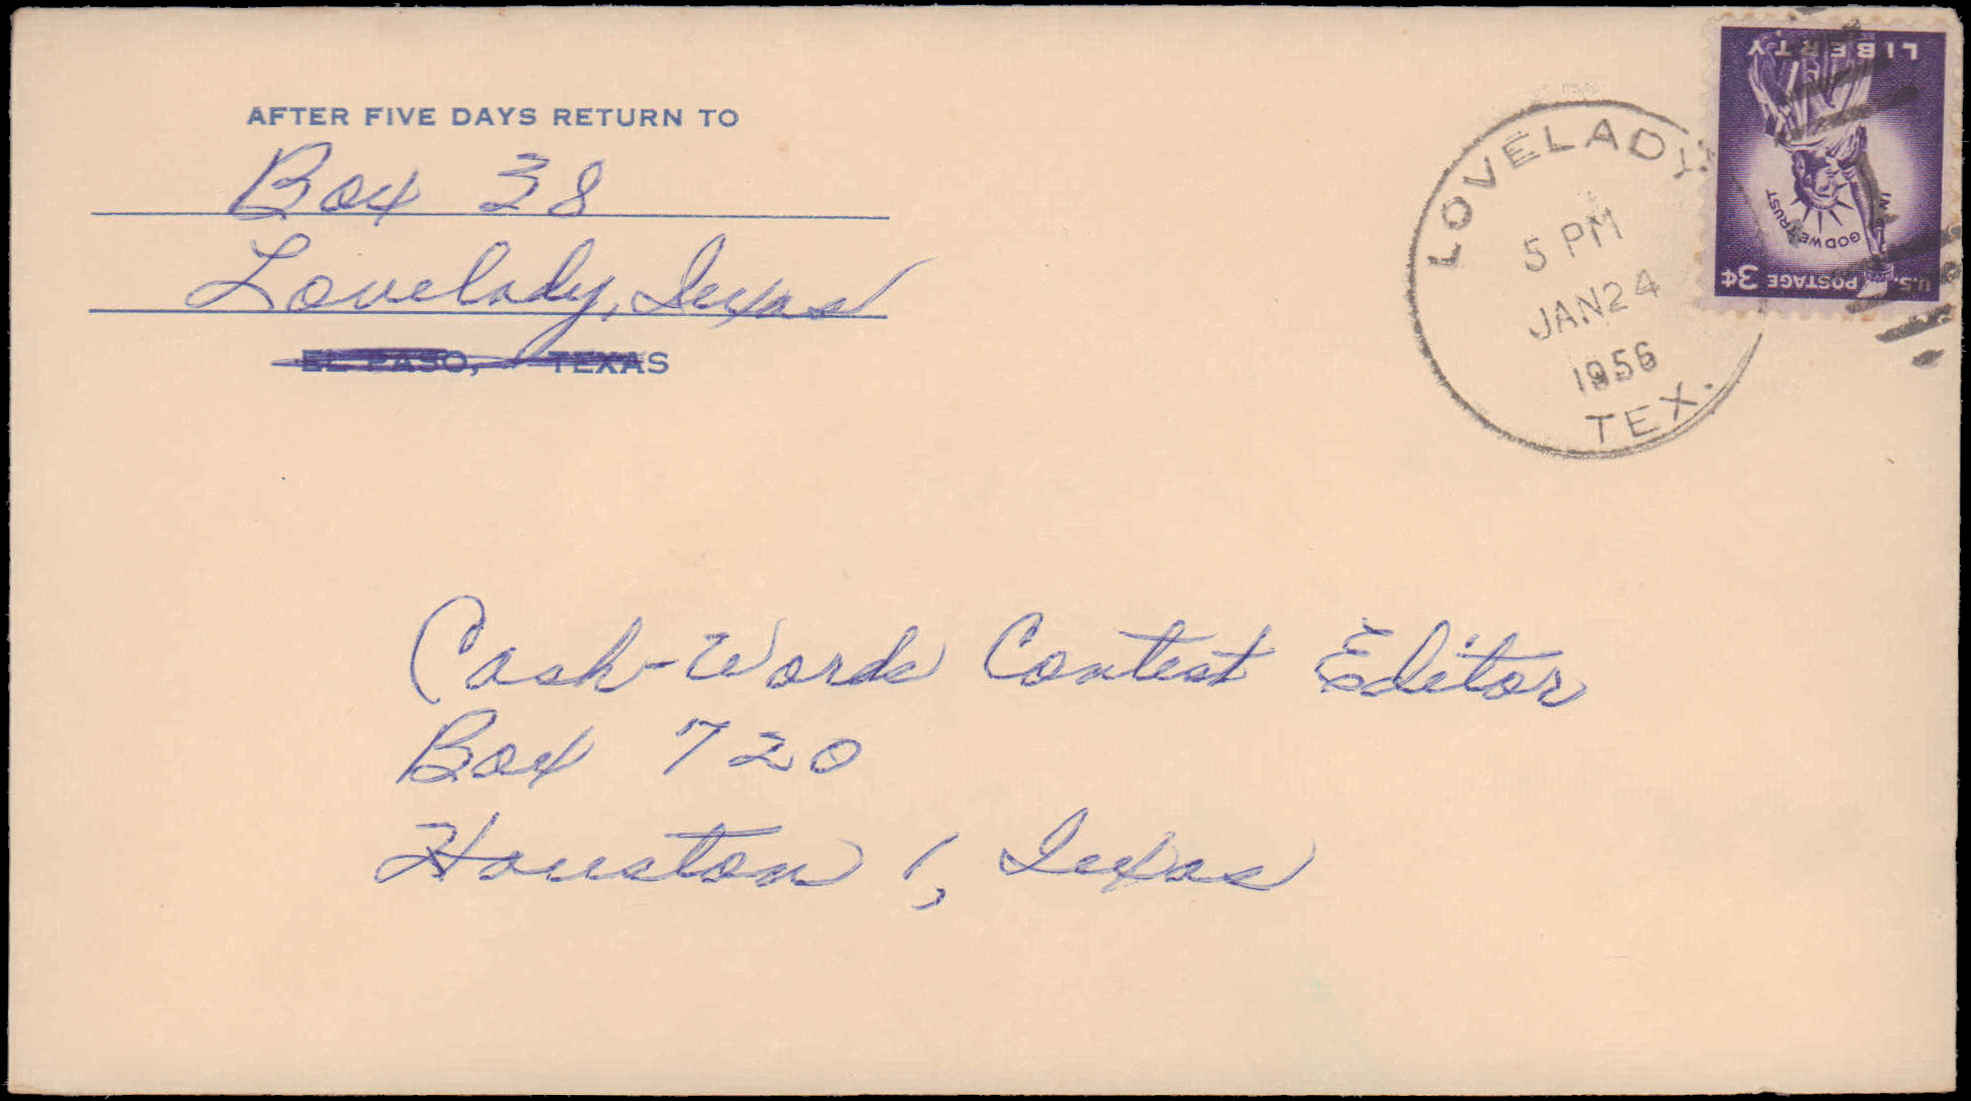 AFTER FIVE DAYS RETURN TO
Box 38
Lovelady, Texas
EL PASO, TEXAS
LOVELADY
5 PM
JAN 24
1956
TEX.
LIBERTY
IN GOD WE TRUST
U.S. POSTAGE 3¢
Cash-Words Contest Editor
Box 720
Houston 1, Texas